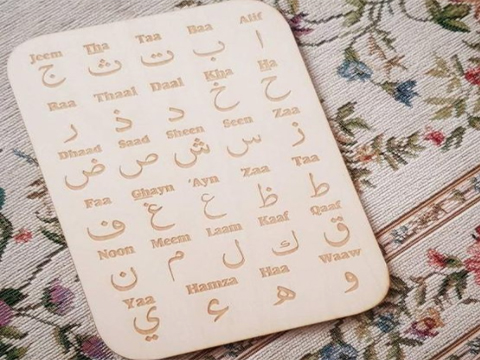 Jeem Tha Taa Baa Alif
ج ث ت ب ا
Raa Thaal Daal Kha Ha
ر ذ د خ ح
Dhaad Saad Sheen Seen Zaa
ض ص ش س ز
Faa Ghayn 'Ayn Zaa Taa
ف غ ع ظ ط
Noon Meem Laam Kaaf Qaaf
ن م ل ك ق
Yaa Hamza Haa Waaw
ي ء ه و